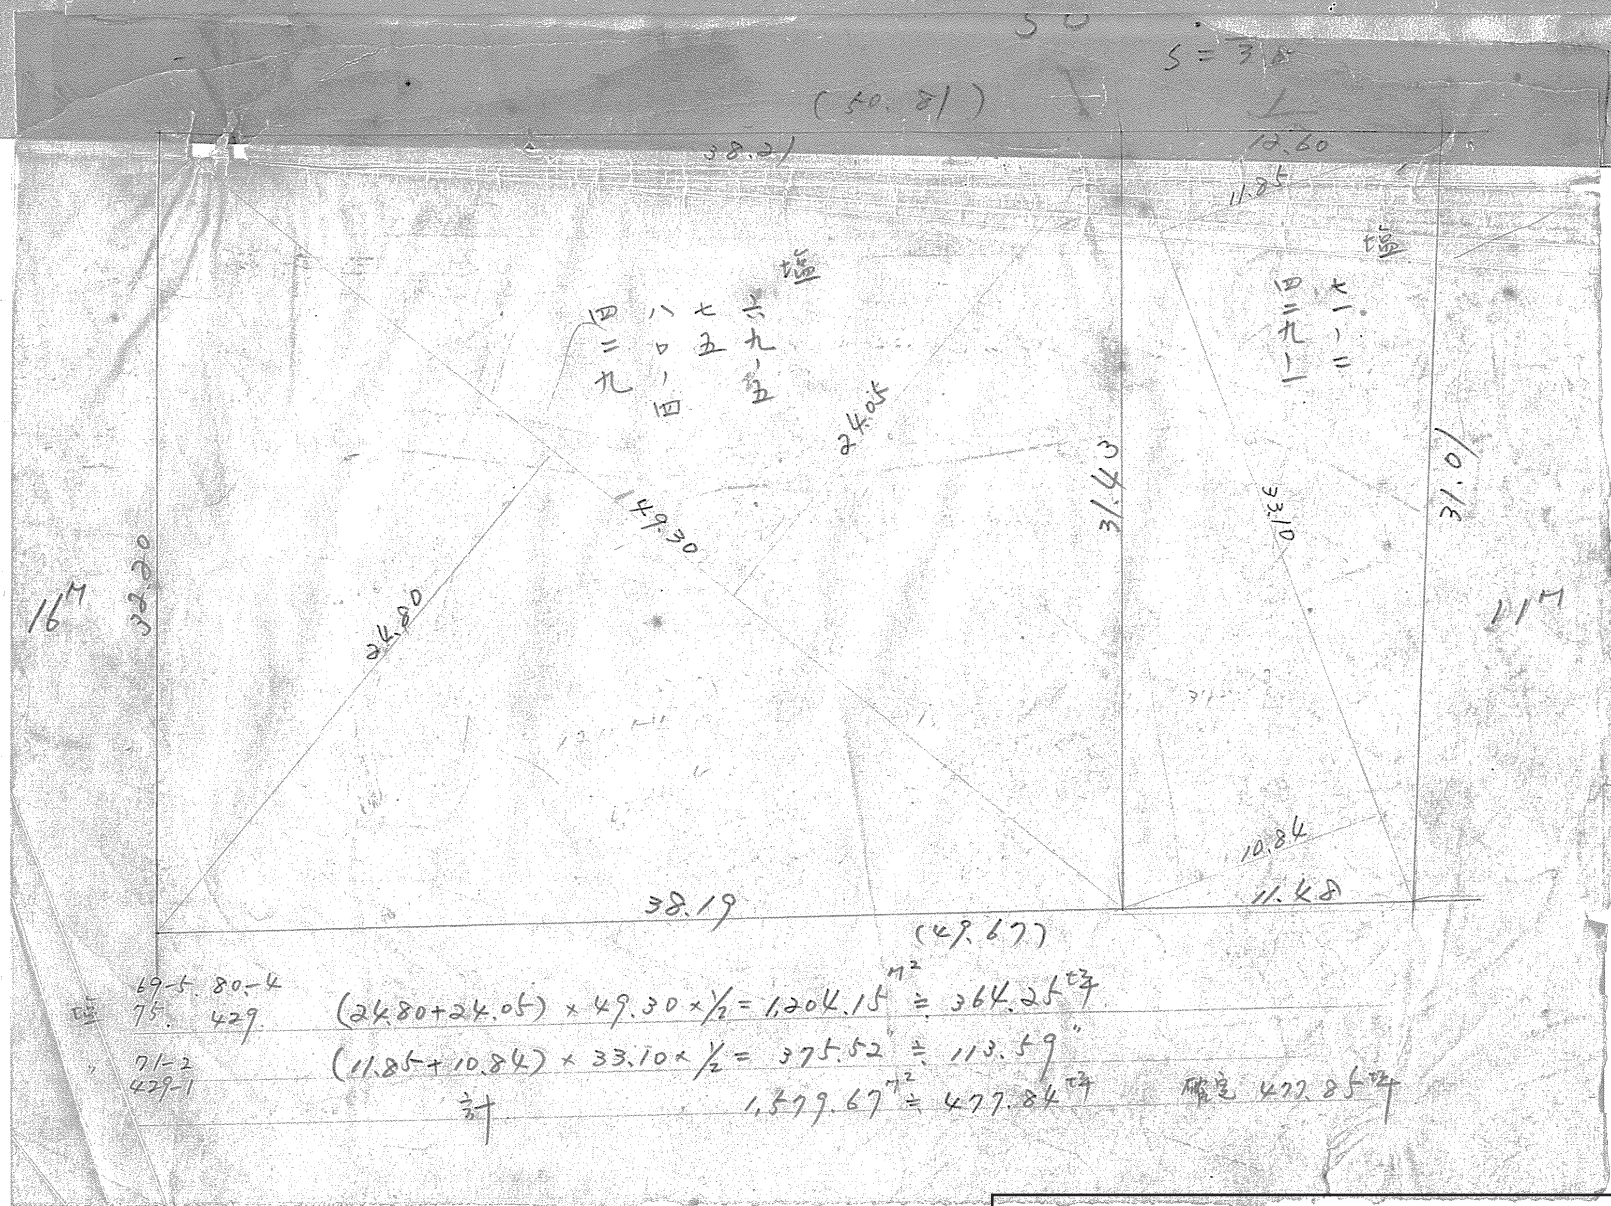 (50.81)
38.21
12.60
11.85
塩
六九、五
七五
八〇、四
四二九
塩
七一、二
四二九、一
24.05
31.43
33.10
31.01
49.30
32.20
24.80
16M
11M
10.84
38.19
11.48
(49.67)
塩 69-5. 80-4
75. 429. (24.80+24.05) × 49.30 × 1/2 = 1,204.15M² ≒ 364.25坪
〃 71-2
429-1 (11.85+10.84) × 33.10 × 1/2 = 375.52〃 ≒ 113.59〃
計 1,579.67M² ≒ 477.84坪 確定 477.85坪